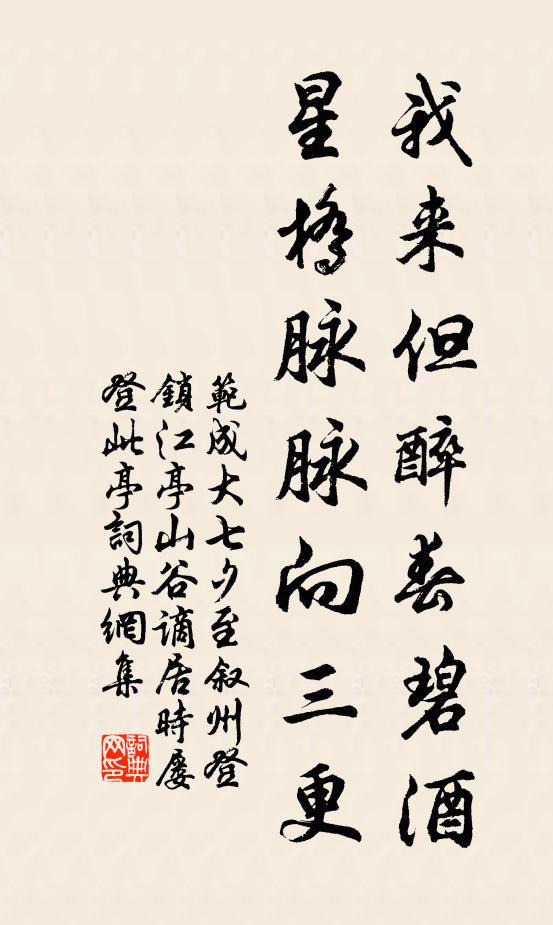 我来但醉春碧酒
星橋脉脉向三更
範成大七夕至叙州登
鎖江亭山谷謫居時屡
登此亭詞典網集
詞典网印